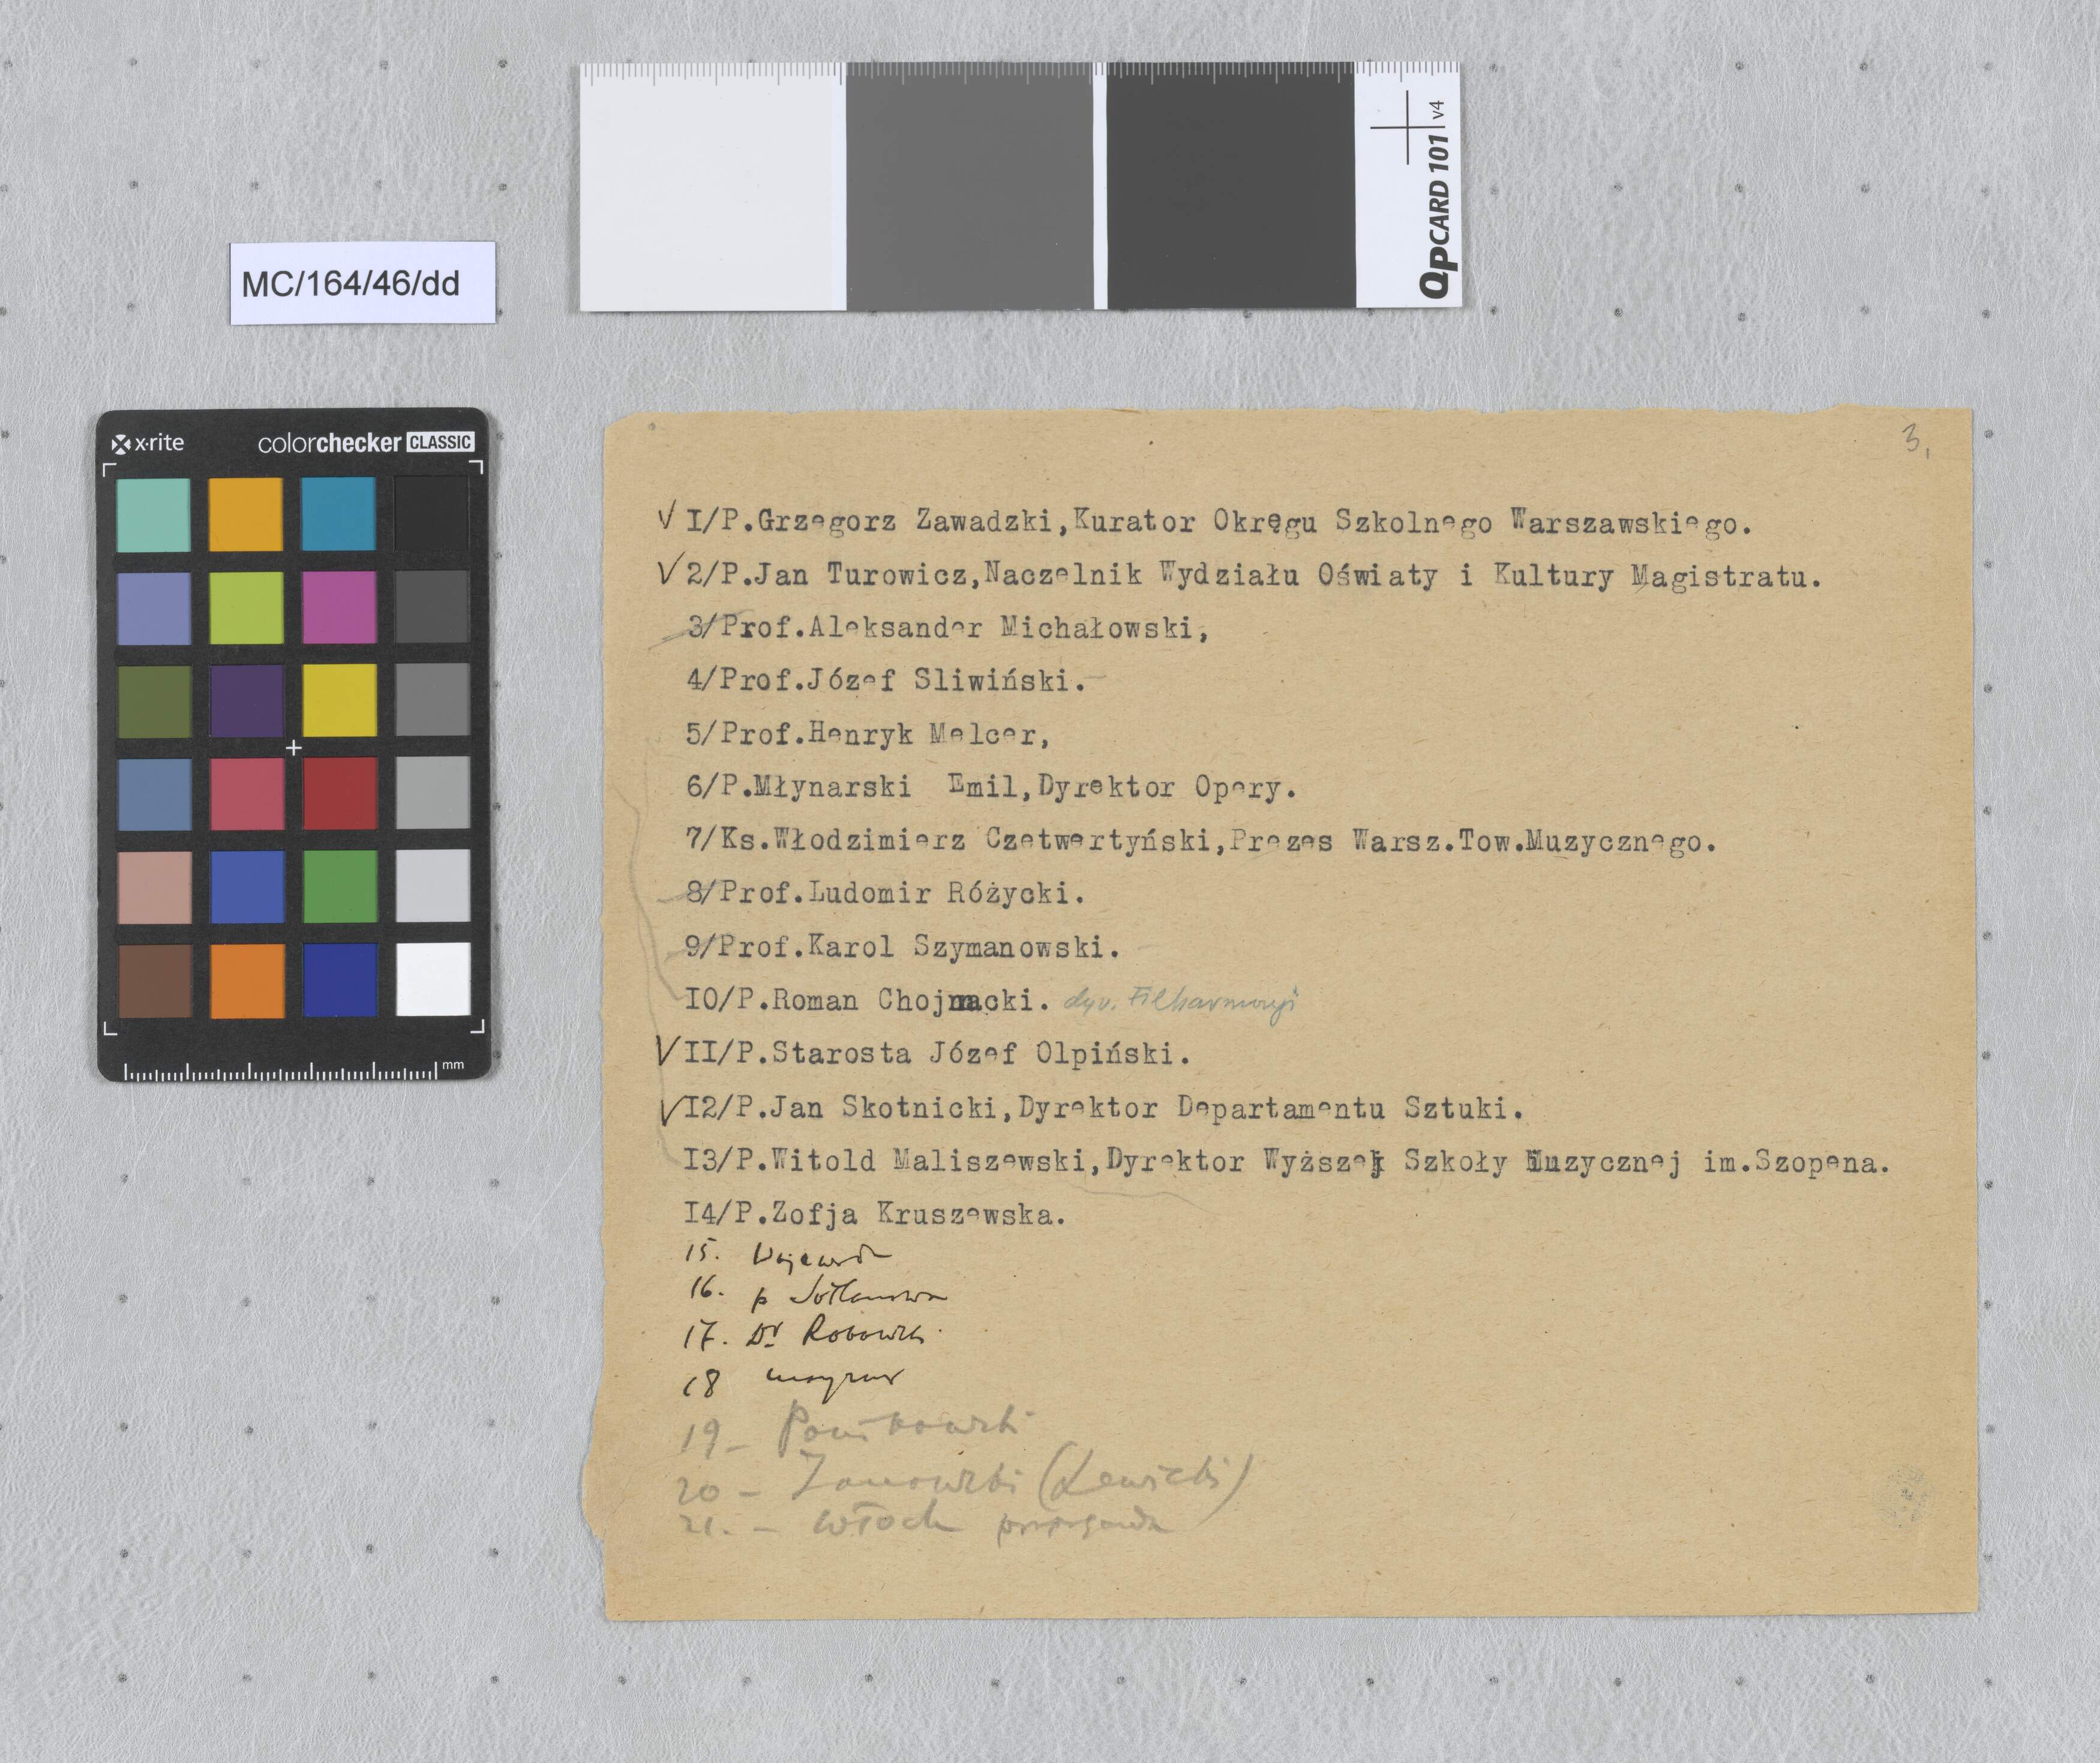 QPCARD 101 v4
MC/164/46/dd
x·rite colorchecker CLASSIC
mm
3,
√ I/P.Grzegorz Zawadzki,Kurator Okręgu Szkolnego Warszawskiego.
√ 2/P.Jan Turowicz,Naczelnik Wydziału Oświaty i Kultury Magistratu.
3/Prof.Aleksander Michałowski,
4/Prof.Józef Sliwiński.
5/Prof.Henryk Melcer,
6/P.Młynarski Emil,Dyrektor Opery.
7/Ks.Włodzimierz Czetwertyński,Prezes Warsz.Tow.Muzycznego.
8/Prof.Ludomir Różycki.
9/Prof.Karol Szymanowski.
IO/P.Roman Chojnacki. dyr. Filharmonji
√ II/P.Starosta Józef Olpiński.
√ I2/P.Jan Skotnicki,Dyrektor Departamentu Sztuki.
I3/P.Witold Maliszewski,Dyrektor Wyższej Szkoły Muzycznej im.Szopena.
I4/P.Zofja Kruszewska.
15.
16. p
17. Dr
18
19 – Ponikowski
20 – (Lewicki)
21. – Włoch propaganda